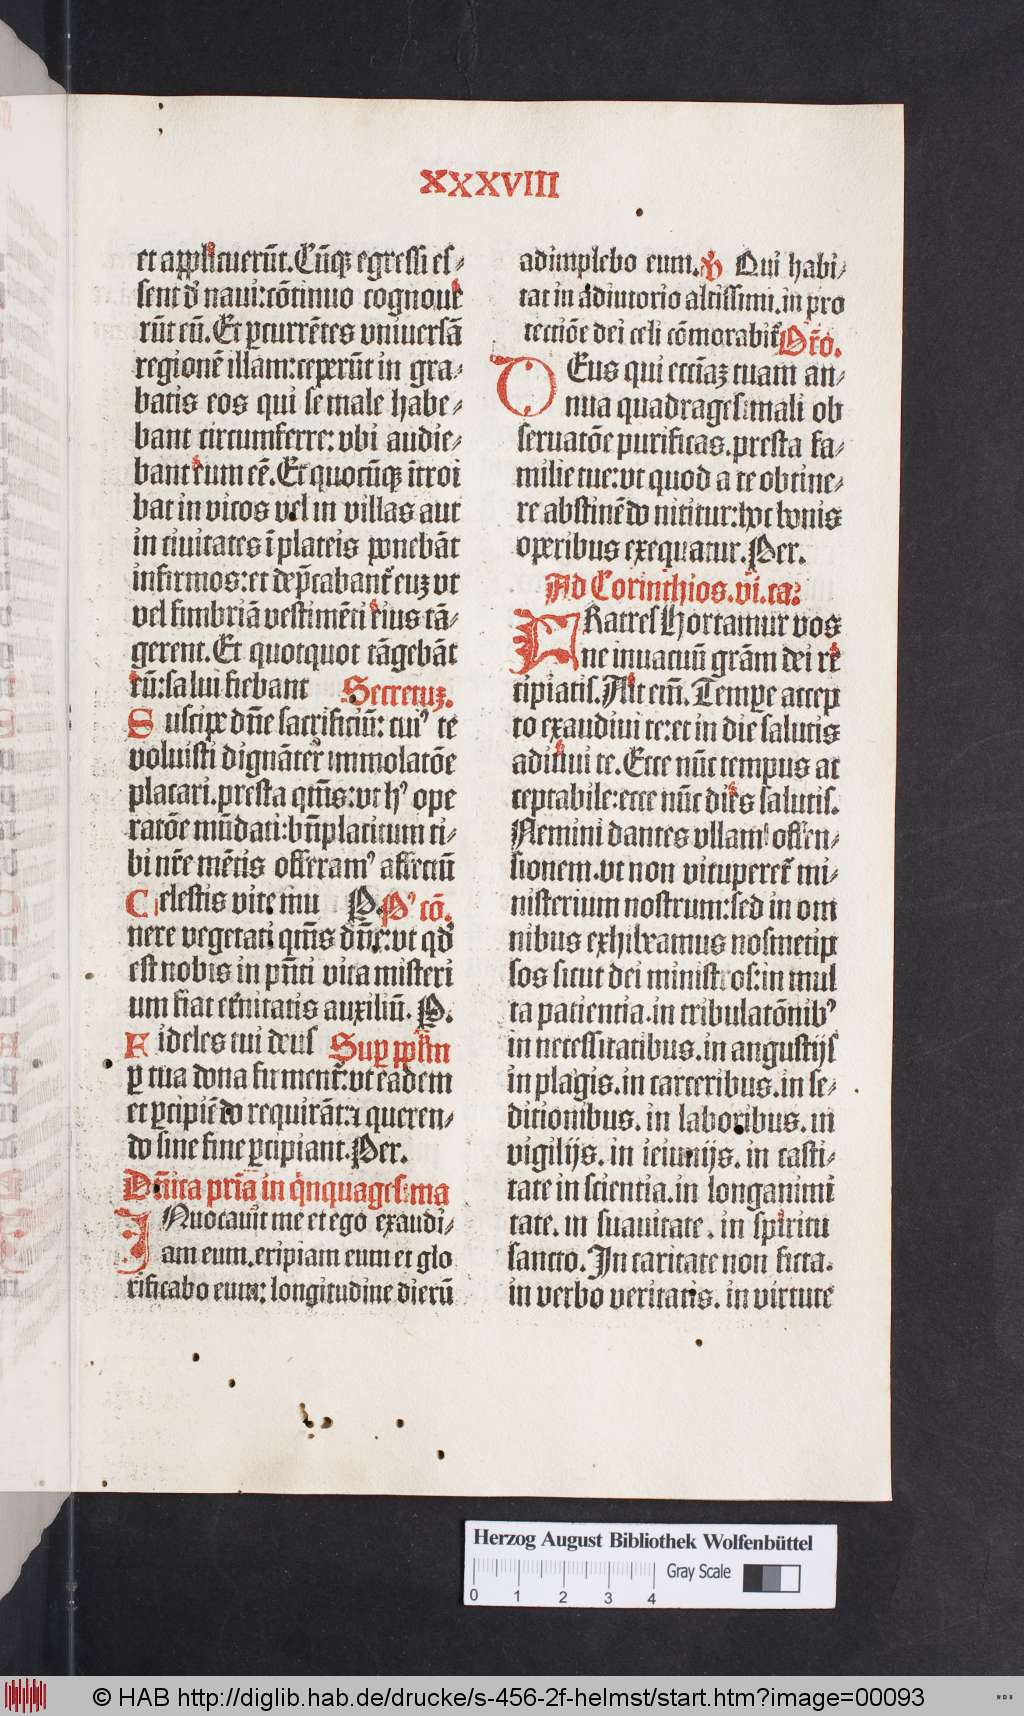 XXXVIII
et applicuerūt. Cūqꝫ egressi es⸗
sent d̄ naui: cōtinuo cognoue
rūt eū. Et ꝑcurrētes vniuersā
regionē illam: ceperūt in gra⸗
batis eos qui se male habe⸗
bant circumferre: vbi audie⸗
bant eum eē. Et quocūqꝫ ītroi
bat in vicos vel in villas aut
in ciuitates ī plateis ponebāt
infirmos: et dep̄cabant᷑ euꝫ vt
vel fimbriā vestimēti eius tā⸗
gerent. Et quotquot tāgebāt
eū: salui fiebant Secretuꝫ.
Suscipe dn̄e sacrificiū: cuiꝰ te
voluisti dignāter immolatōe
placari. presta qm̄s: vt hꝰ ope
ratōe mūdati: bn̄placitum ti⸗
bi nr̄e mētis offeramꝰ affectū
Celestis vite mu P. Pꝰ cō.
nere vegetati qm̄s dn̄e: vt qd̄
est nobis in pn̄ti vita misteri
um fiat et̄nitatis auxiliū. P.
Fideles tui deus Suꝑ pplm̄
ꝑ tua dona firment᷑: vt eadem
et ꝑcipiēdo requirāt: ⁊ queren⸗
do sine fine ꝑcipiant. Per.
Dn̄ica pria in qͥnquagesima
INuocauit me et ego exaudi⸗
am eum. eripiam eum et glo
rificabo eum: longitudine dierū
adimplebo eum. V̄ Qui habi⸗
tat in adiutorio altissimi. in pro
tectiōe dei celi cōmorabit᷑ Or̄o.
DEus qui eccīaꝫ tuam an⸗
nua quadragesimali ob
seruatōe purificas. presta fa⸗
milie tue: vt quod a te obtine⸗
re abstinēdo nititur: hoc bonis
operibus exequatur. Per.
Ad Corinthios. vi. ca:
FRatres Hortamur vos
ne inuacuū gr̄am dei re
cipiatis. Ait em̄. Tempe accep
to exaudiui te: et in die salutis
adiuui te. Ecce nūc tempus ac
ceptabile: ecce nūc dies salutis.
Nemini dantes vllam offen⸗
sionem. vt non vituperet᷑ mi⸗
nisterium nostrum: sed in om
nibus exhibeamus nosmetip
sos sicut dei ministros: in mul
ta patientia. in tribulatōnibꝰ
in necessitatibus. in angustijs
in plagis. in carceribus. in se⸗
ditionibus. in laboribus. in
vigilijs. in ieiunijs. in casti⸗
tate in scientia. in longanimi
tate. in suauitate. in spiritu
sancto. In caritate non ficta.
in verbo veritatis. in virtute
Herzog August Bibliothek Wolfenbüttel
Gray Scale
0 1 2 3 4
© HAB http://diglib.hab.de/drucke/s-456-2f-helmst/start.htm?image=00093